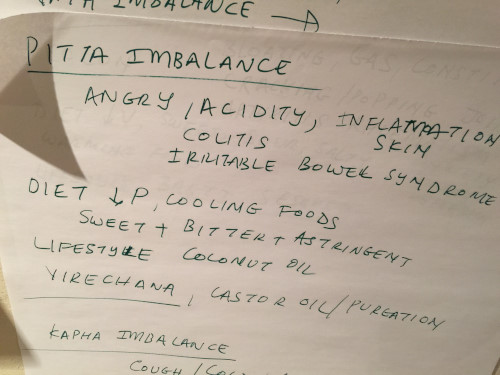 KAPHA IMBALANCE →
PITTA IMBALANCE
ANGRY, ACIDITY, INFLAMATION
COLITIS SKIN
IRRITABLE BOWEL SYNDROME
DIET ↓ P, COOLING FOODS
SWEET + BITTER + ASTRINGENT
LIFESTYLE COCONUT OIL
VIRECHANA, CASTOR OIL/PURGATION
KAPHA IMBALANCE
COUGH /